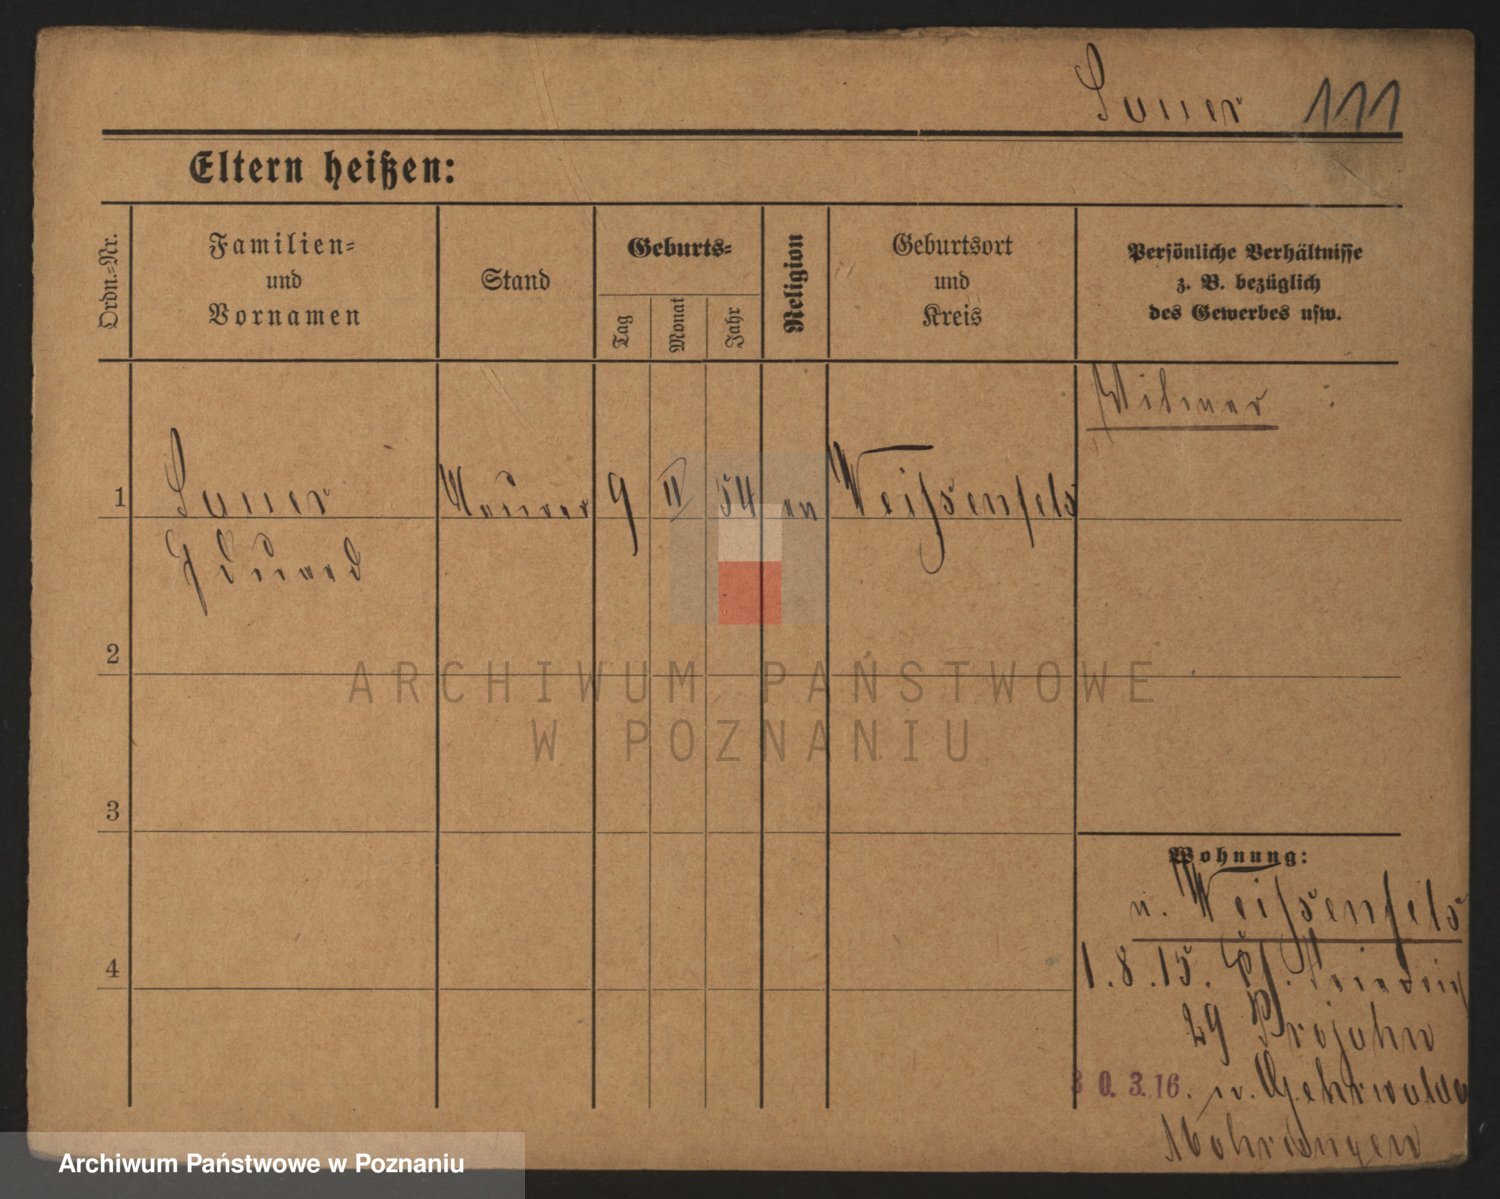 Sauer 111
Eltern heißen:
Ordn.-Nr.
Familien-
und
Vornamen
Stand
Geburts-
Tag
Monat
Jahr
Religion
Geburtsort
und
Kreis
Persönliche Verhältnisse
z. B. bezüglich
des Gewerbes usw.
Witwer
1 Sauer Maurer 9 II 54 ev Weißenfels
Eduard
2
3
4
Wohnung:
n. Weißenfels
1.8.15. Friedrich
29 Projahn
30.3.16. n. Gehrwalde
Mohrungen
ARCHIWUM PAŃSTWOWE
W POZNANIU
Archiwum Państwowe w Poznaniu